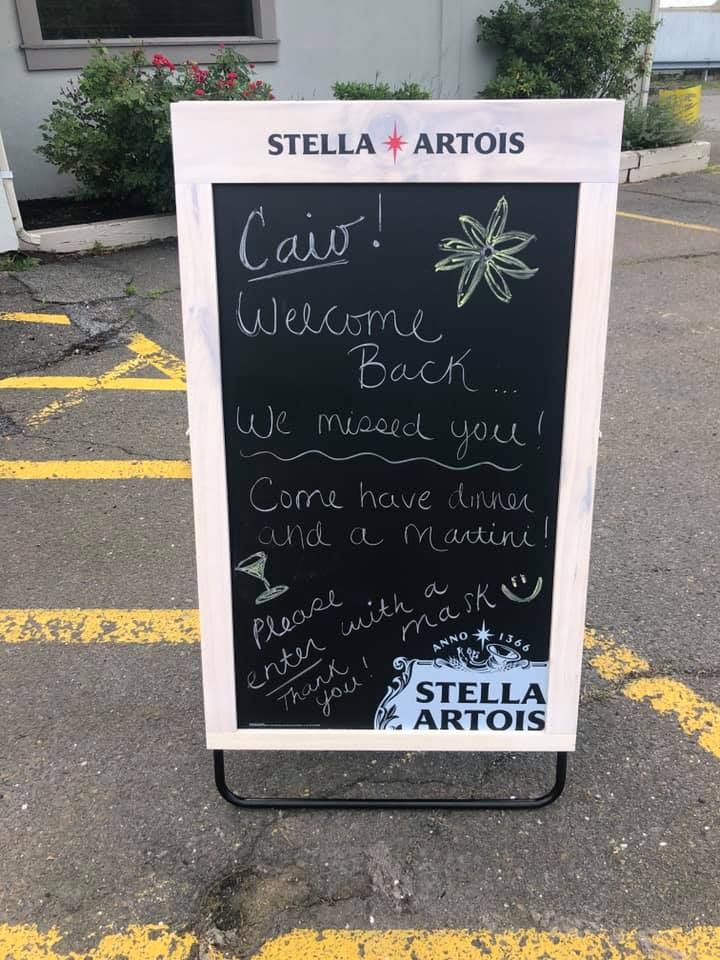 STELLA ARTOIS
Caio!
Welcome
Back...
We missed you!
Come have dinner
and a Martini!
Please
enter with a
mask
Thank
you!
ANNO 1366
STELLA
ARTOIS